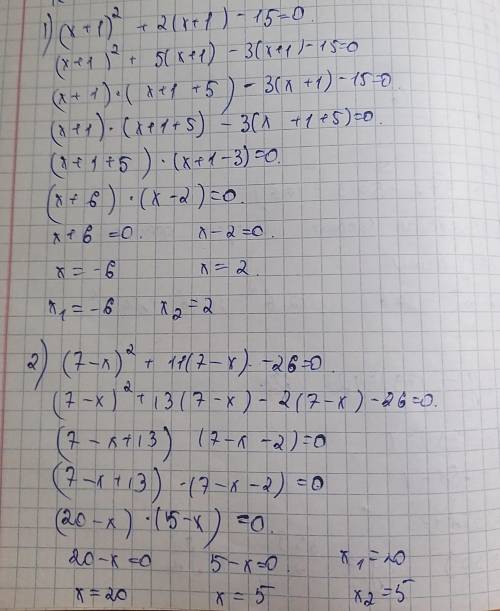 1) (x+1)² + 2(x+1) - 15=0.
(x+1)² + 5(x+1) - 3(x+1) - 15=0
(x+1)·(x+1+5) - 3(x+1) - 15=0.
(x+1)·(x+1+5) - 3(x+1+5)=0.
(x+1+5)·(x+1-3)=0.
(x+6)·(x-2)=0.
x+6=0. x-2=0.
x=-6 x=2.
x₁=-6 x₂=2
2) (7-x)² + 11(7-x). -26=0.
(7-x)² + 13(7-x) - 2(7-x) - 26=0.
(7-x+13) (7-x-2)=0
(7-x+13)·(7-x-2)=0
(20-x)·(5-x)=0.
20-x=0 5-x=0. x₁=20
x=20 x=5 x₂=5